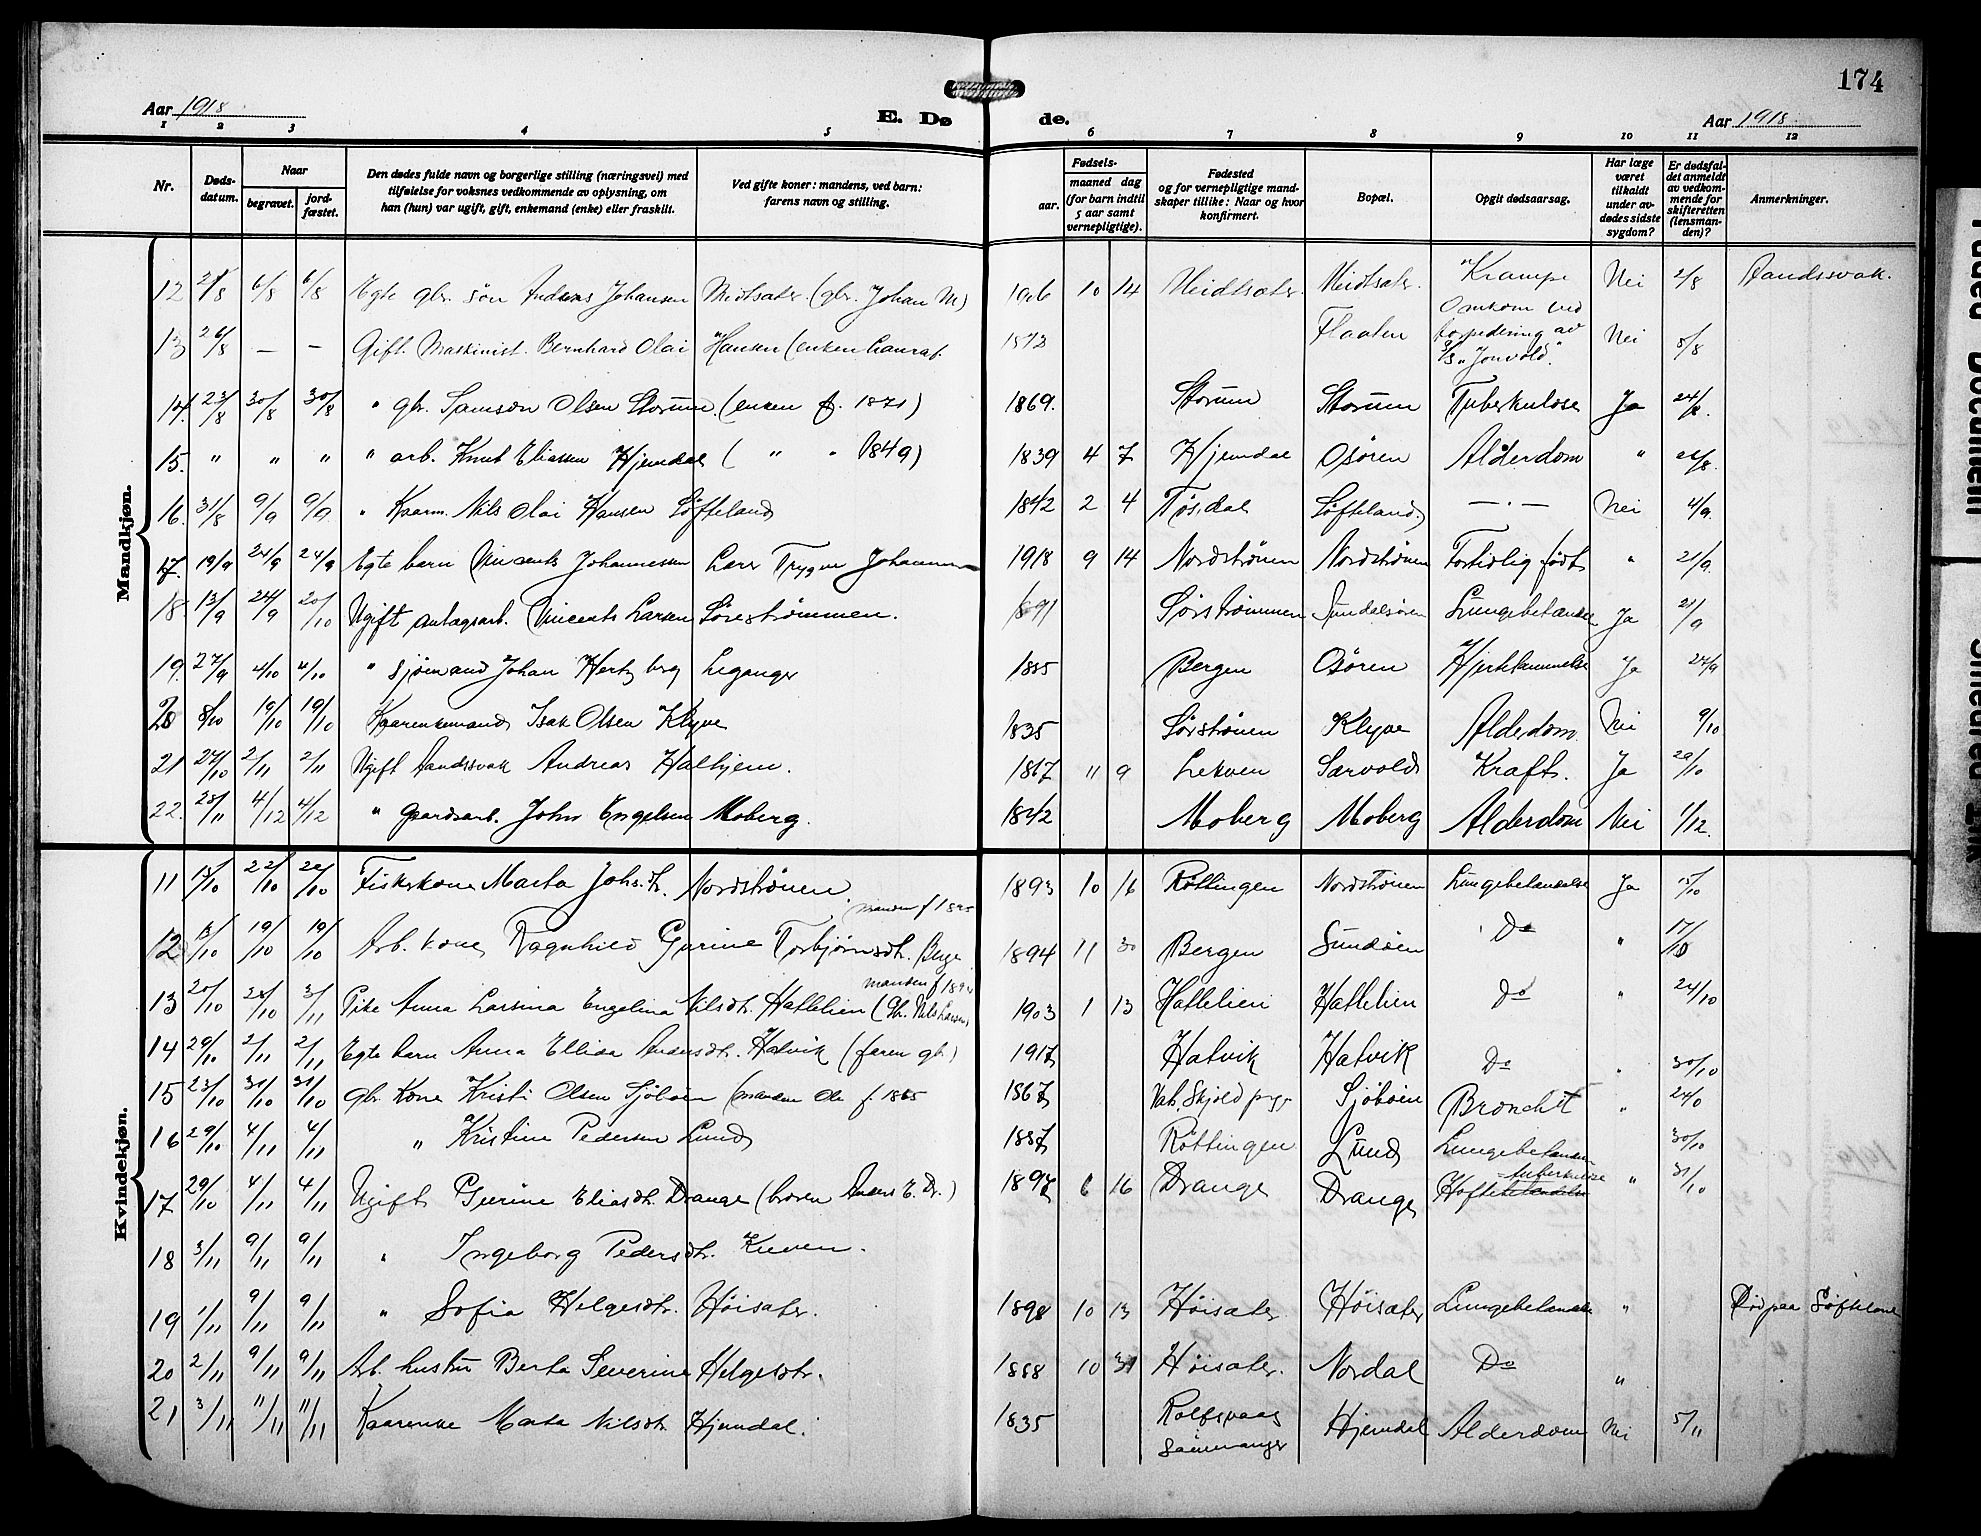 174
Aar 1918
E. Døde.
Aar 1918.
1 2 3 4 5 6 7 8 9 10 11 12
Nr.
Døds-datum.
Naar
begravet.
jord-fæstet.
Den dødes fulde navn og borgerlige stilling (næringsvei) med
tilføielse for voksnes vedkommende av oplysning, om
han (hun) var ugift, gift, enkemand (enke) eller fraskilt.
Ved gifte koner: mandens, ved barn:
farens navn og stilling.
Fødsels-
aar.
maaned dag
(for barn indtil
5 aar samt
vernepligtige).
Fødested
og for vernepligtige mand-
skaper tillike: Naar og hvor
konfirmert.
Bopæl.
Opgit dødsaarsag.
Har læge
været
tilkaldt
under av-
dødes sidste
sygdom?
Er dødsfal-
det anmeldt
av vedkom-
mende for
skifteretten
(lensman-
den)?
Anmerkninger.
Mandkjøn.
12 2/8 6/8 6/8 Egte gbr. søn Andreas Johansen Midtsæter (gbr. Johan M) 1906 10 14 Meidtsæter Meidtsæter. Krampe Nei 2/8 Aandssvak.
13 26/8 — — Gift. Maskinist. Bernhard Olai Hansen (enken Flaaten Omkom ved
torpedering av
S/S "Jonvold". Nei 5/8
14. 23/8 30/8 30/8 " gbr. Samson Olsen Storum (enken f. 1871) 1869. Storum Storum Tuberkulose Ja 24/8.
15. " " " " arb. Knut Eliassen Hjemdal ( " " 1849) 1839 4 7 Hjemdal Osøren Alderdom "
16. 31/8 9/9 9/9 " Kaarm. Nils Olai Hansen Søfteland 1842 2 4 Tøsdal Søfteland —.— Nei 4/9.
17. 19/9 24/9 24/9 Egte barn Vincents Johannessen Lærer Trygve Johannes 1918 9 14 Nordstrønen Nordstrønen Fortidlig født " 21/9.
18. 13/9 24/9 20/10 Ugift anlægsarb. Vincents Larsen Sørestrømmen. 1891 Sørstrømmen Sundalsøren Lungebetændelse Ja 21/9
19. 27/9 4/10 4/10 " sjømand Johan Hertzberg Leganger Bergen Osøren Hjertelammelse Ja
20 8/10 19/10 19/10 Kaarenkemand Isak Olsen Klyve 1835 Sørstrønen Klyve Alderdom Nei 9/10
21 24/10 2/11 2/11 Ugift Aandssvak Andreas Halhjem. 1867 11 9 Lekven Sarvold Kræft. Ja 29/10
22. 28/11 4/12 4/12 " gaardsarb. John Engelsen Moberg. 1842 Moberg Moberg Alderdom Nei 1/12.
Kvindekjøn.
11 15/10 22/10 22/10 Fiskerkone Marta Johs.dt. Nordstrønen. 1893 10 16 Røttingen Nordstrønen Lungebetændelse Ja 15/10
manden f 1895
12 19/10 19/10 Arb. kone Ragnhild Gurine Torbjørnsdt. Berge 1894 11 30 Bergen Sundøen Do " 17/10
manden f
13 20/10 28/10 3/11 Pike Anna Larsina Engelina Nilsdt. Hattelien (Gbr. Nils Larsen) 1903 1 13 Hattelien Hattelien Do " 24/10
14 29/10 2/11 2/11 Egte barn Anna Ellida Andersdt. Hatvik (faren gbr) 1917 Hatvik Hatvik Do " 30/10
15 23/10 31/10 31/10 gbr. Kone Kristi Olsen Sjøbøen (manden Ole f. 1865 1867 Skjold Sjøbøen Bronchit "
16 29/10 4/11 4/11 " Kristine Pedersen Lund Røttingen Lund Lungebetændelse 30/10
17 29/10 4/11 4/11 Ugift Gurine Eliasdt. Drange (broren Anders E. Dr.) 1897 6 16 Drange Drange Hoftebetændelse tuberkulose " 31/10
18 3/11 9/11 9/11 " Ingeborg Pedersdt. Kuven.
19 1/11 9/11 9/11 " Sofia Helgesdt. Høisæter. 1898 10 13 Høisæter Høisæter Lungebetændelse " Død paa Søfteland
20 2/11 9/11 9/11 Arb. hustru Berta Severine Helgesdtr. 1888 10 31 Høisæter. Nordal Do "
21 3/11 11/11 11/11 Kaarenke Marta Nilsdt. Hjemdal. 1835 Rolfsvaag
Samnanger Hjemdal Alderdom Nei 5/11